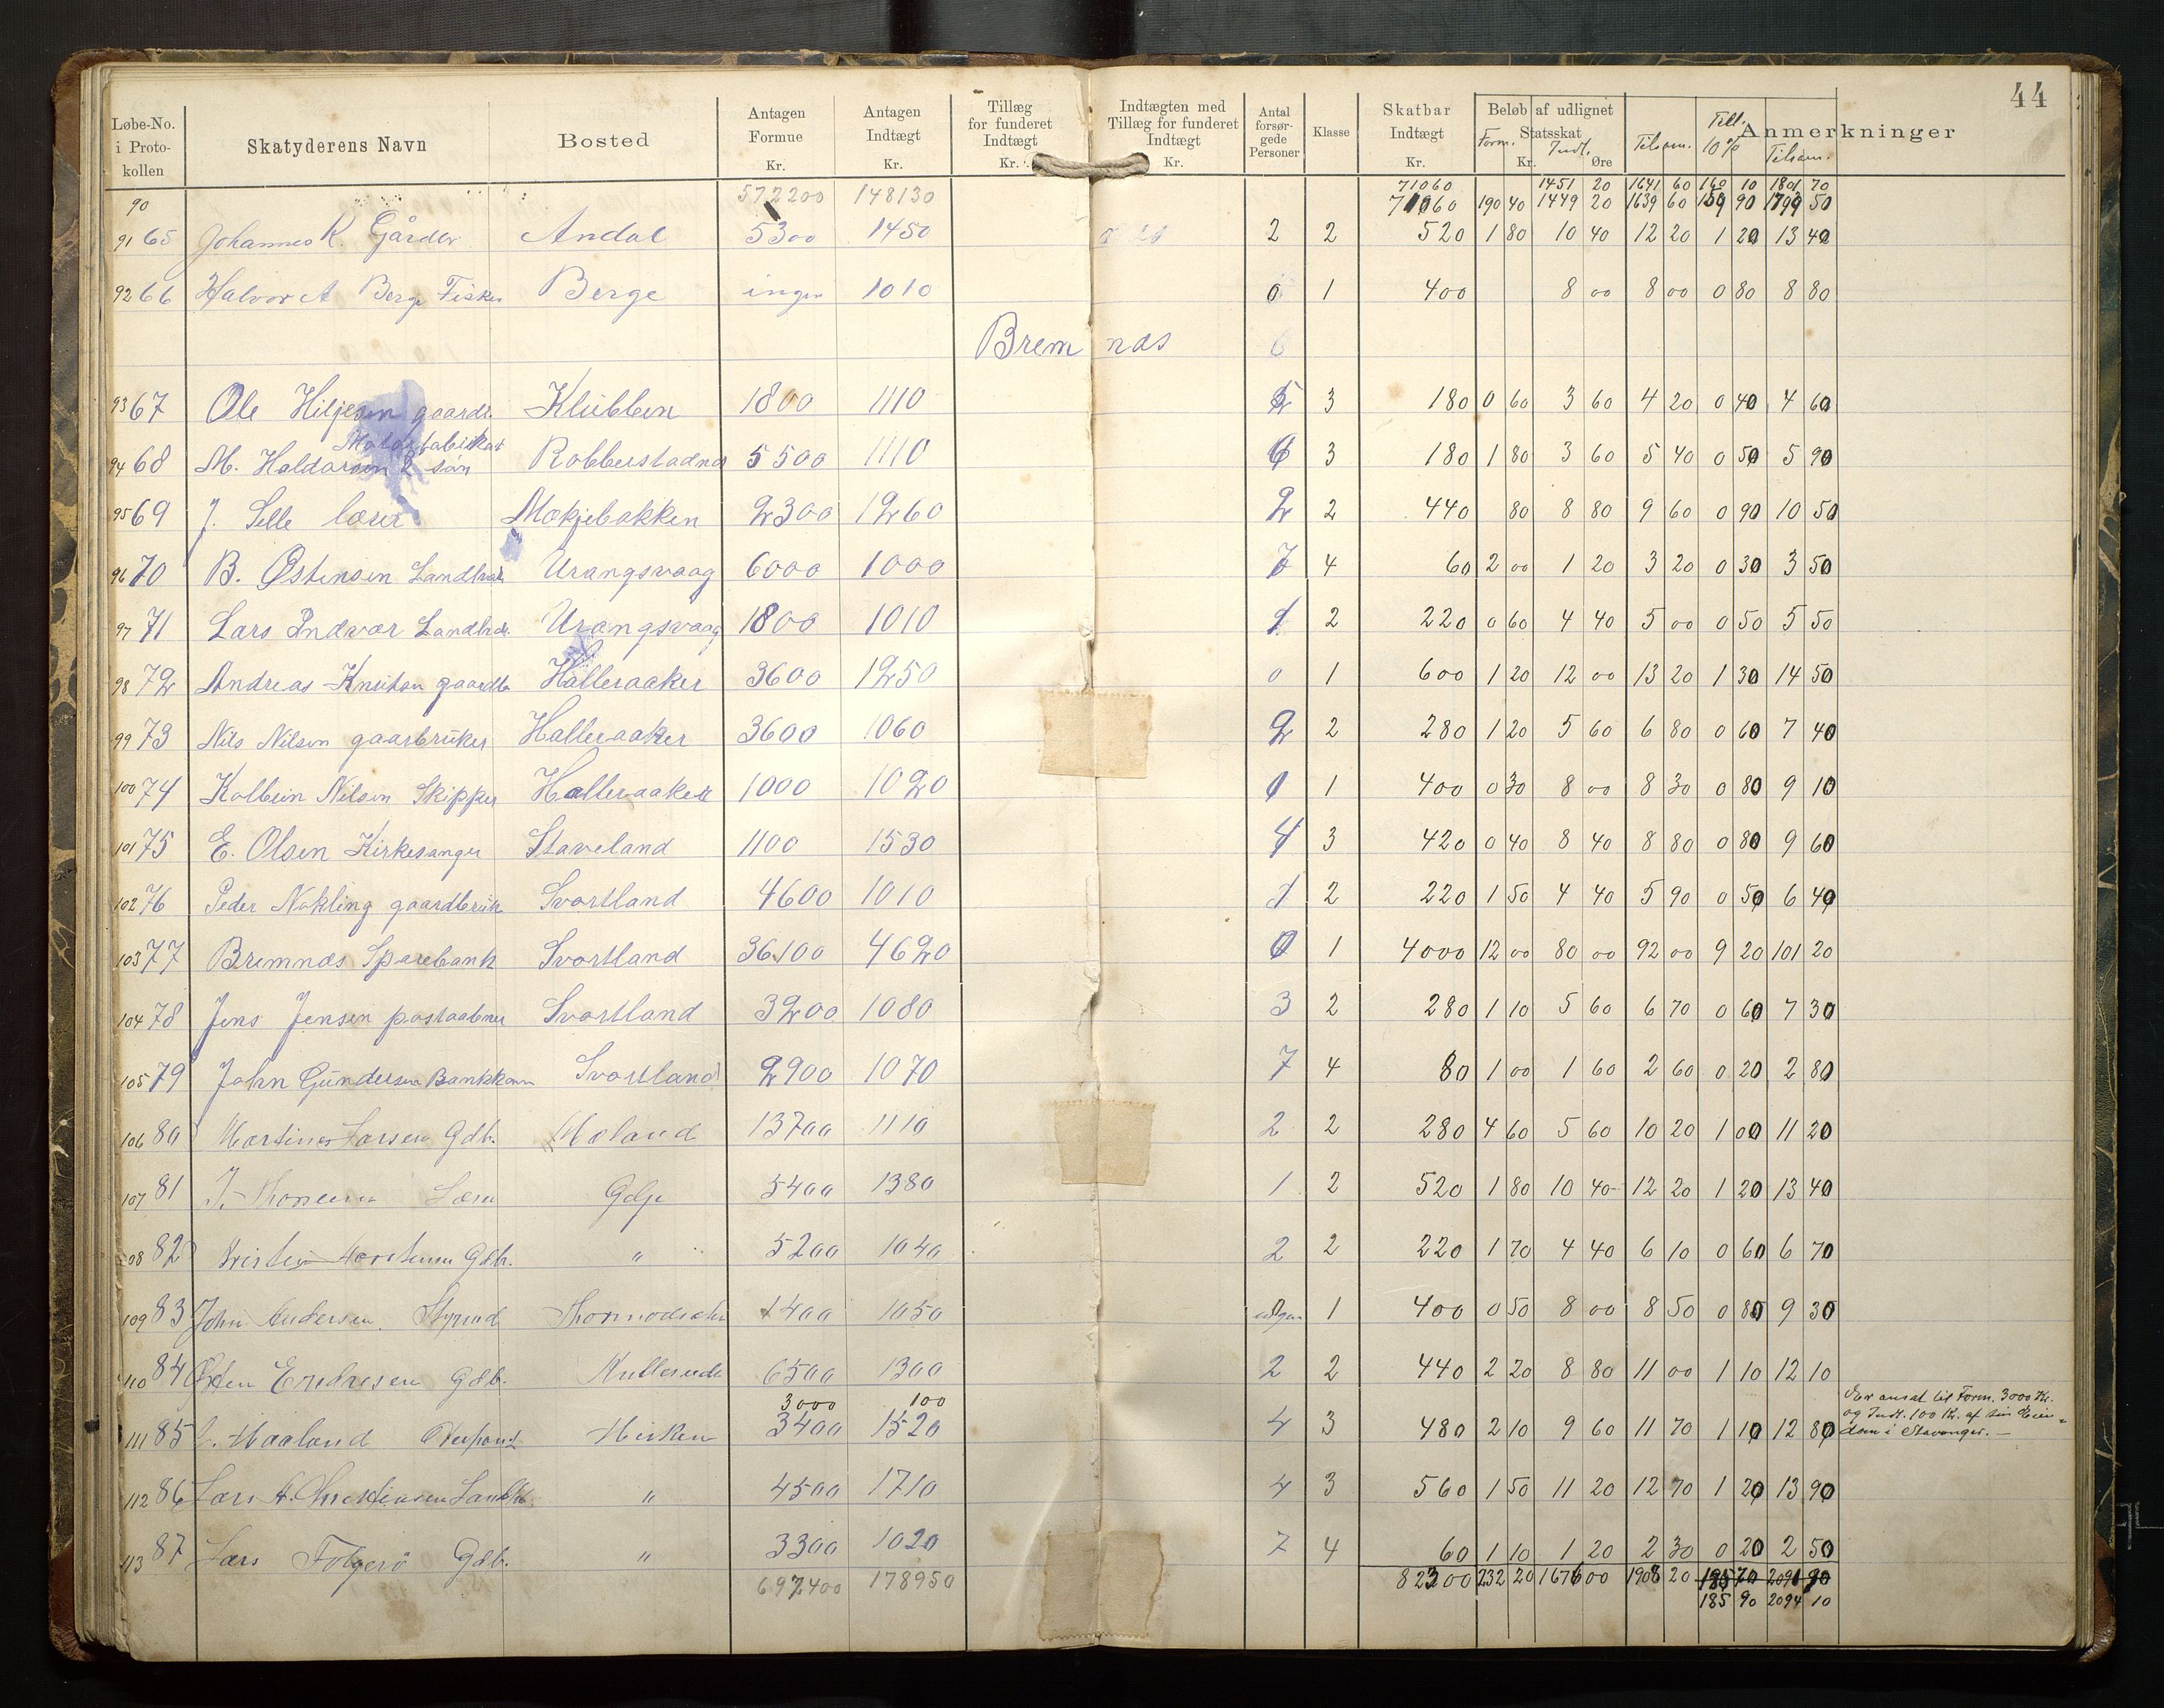 44
Løbe-No. i Protokollen | Skatyderens Navn | Bosted | Antagen Formue Kr. | Antagen Indtægt Kr. | Tillæg for funderet Indtægt Kr. | Indtægten med Tillæg for funderet Indtægt Kr. | Antal forsørgede Personer | Klasse | Skatbar Indtægt Kr. | Beløb af udlignet Statsskat Form. Kr. Indt. Øre | Tilsam. | Till. 10% | Tilsam. | Anmerkninger
71060 | 1451 20 | 1641 60 | 160 10 | 1801 70
90 | 572200 | 148130 | 71060 | 190 40 | 1449 20 | 1639 60 | 159 90 | 1799 50
91 65 | Johannes K. Gårder | Andal | 5300 | 1450 | 2 | 2 | 520 | 1 80 | 10 40 | 12 20 | 1 20 | 13 40
92 66 | Halvor A Berge Fisker | Berge | ingen | 1010 | 0 | 1 | 400 | 8 00 | 8 00 | 0 80 | 8 80
Bremnæs
93 67 | Ole Hiljesen gaardr. | Klubben | 1800 | 1110 | 3 | 180 | 0 60 | 3 60 | 4 20 | 0 40 | 4 60
Motorfabrikat
94 68 | M. Haldorsen & søn | Robberstadnes | 5500 | 1110 | 6 | 3 | 180 | 1 80 | 3 60 | 5 40 | 0 50 | 5 90
95 69 | J. Selle lærer | Mækjebakken | 2300 | 1260 | 2 | 2 | 440 | 80 | 8 80 | 9 60 | 0 90 | 10 50
96 70 | B. Østensen Landhdl. | Urangsvaag | 6000 | 1000 | 7 | 4 | 60 | 2 00 | 1 20 | 3 20 | 0 30 | 3 50
97 71 | Lars Indvær Landhdl. | Urangsvaag | 1800 | 1010 | 1 | 2 | 220 | 0 60 | 4 40 | 5 00 | 0 50 | 5 50
98 72 | Andreas Knutsen gaardb | Halleraaker | 3600 | 1250 | 0 | 1 | 600 | 1 20 | 12 00 | 13 20 | 1 30 | 14 50
99 73 | Nils Nilsen gaarbruker | Halleraaker | 3600 | 1060 | 2 | 2 | 280 | 1 20 | 5 60 | 6 80 | 0 60 | 7 40
100 74 | Kolbein Nilsen Skipper | Halleraaker | 1000 | 1020 | 1 | 400 | 0 30 | 8 00 | 8 30 | 0 80 | 9 10
101 75 | E. Olsen Kirkesanger | Staveland | 1100 | 1530 | 4 | 3 | 420 | 0 40 | 8 40 | 8 80 | 0 80 | 9 60
102 76 | Peder Nokling gaardbruk | Svortland | 4600 | 1010 | 1 | 2 | 220 | 1 50 | 4 40 | 5 90 | 0 50 | 6 40
103 77 | Bremnæs Sparebank | Svortland | 36100 | 4620 | 0 | 1 | 4000 | 12 00 | 80 00 | 92 00 | 9 20 | 101 20
104 78 | Jens Jensen postaabner | Svortland | 3200 | 1080 | 3 | 2 | 280 | 1 10 | 5 60 | 6 70 | 0 60 | 7 30
105 79 | John Gundersen Bankkass | Svortland | 2900 | 1070 | 7 | 4 | 80 | 1 00 | 1 60 | 2 60 | 0 20 | 2 80
106 80 | Martines Larsen Gdb. | Meland | 13700 | 1110 | 2 | 2 | 280 | 4 60 | 5 60 | 10 20 | 1 00 | 11 20
107 81 | Lærer | 5400 | 1380 | 1 | 2 | 520 | 1 80 | 10 40 | 12 20 | 1 20 | 13 40
108 82 | Gdb. | " | 5200 | 1040 | 2 | 2 | 220 | 1 70 | 4 40 | 6 10 | 0 60 | 6 70
109 83 | John Andersen Styrmd | Thormodsæter | 1400 | 1050 | ingen | 1 | 400 | 0 50 | 8 00 | 8 50 | 0 80 | 9 30
110 84 | Østen Endresen Gdb. | Kulleseide | 6500 | 1300 | 2 | 2 | 440 | 2 20 | 8 80 | 11 00 | 1 10 | 12 10
3000 | 100 | Er ansat til Form. 3000 Kr.
og Indt. 100 Kr. af sin Eien-
111 85 | Haaland | Hisken | 3400 | 1520 | 4 | 3 | 480 | 2 10 | 9 60 | 11 70 | 1 10 | 12 80 | dom i Stavanger. —
112 86 | Lars A. Landhdl. | " | 4500 | 1710 | 4 | 3 | 560 | 1 50 | 11 20 | 12 70 | 1 20 | 13 90
113 87 | Lars Folgerø Gdb. | " | 3300 | 1020 | 7 | 4 | 60 | 1 10 | 1 20 | 2 30 | 0 20 | 2 50
697400 | 178950 | 82300 | 232 20 | 1676 00 | 1908 20 | 185 70 | 2091 90
185 90 | 2094 10